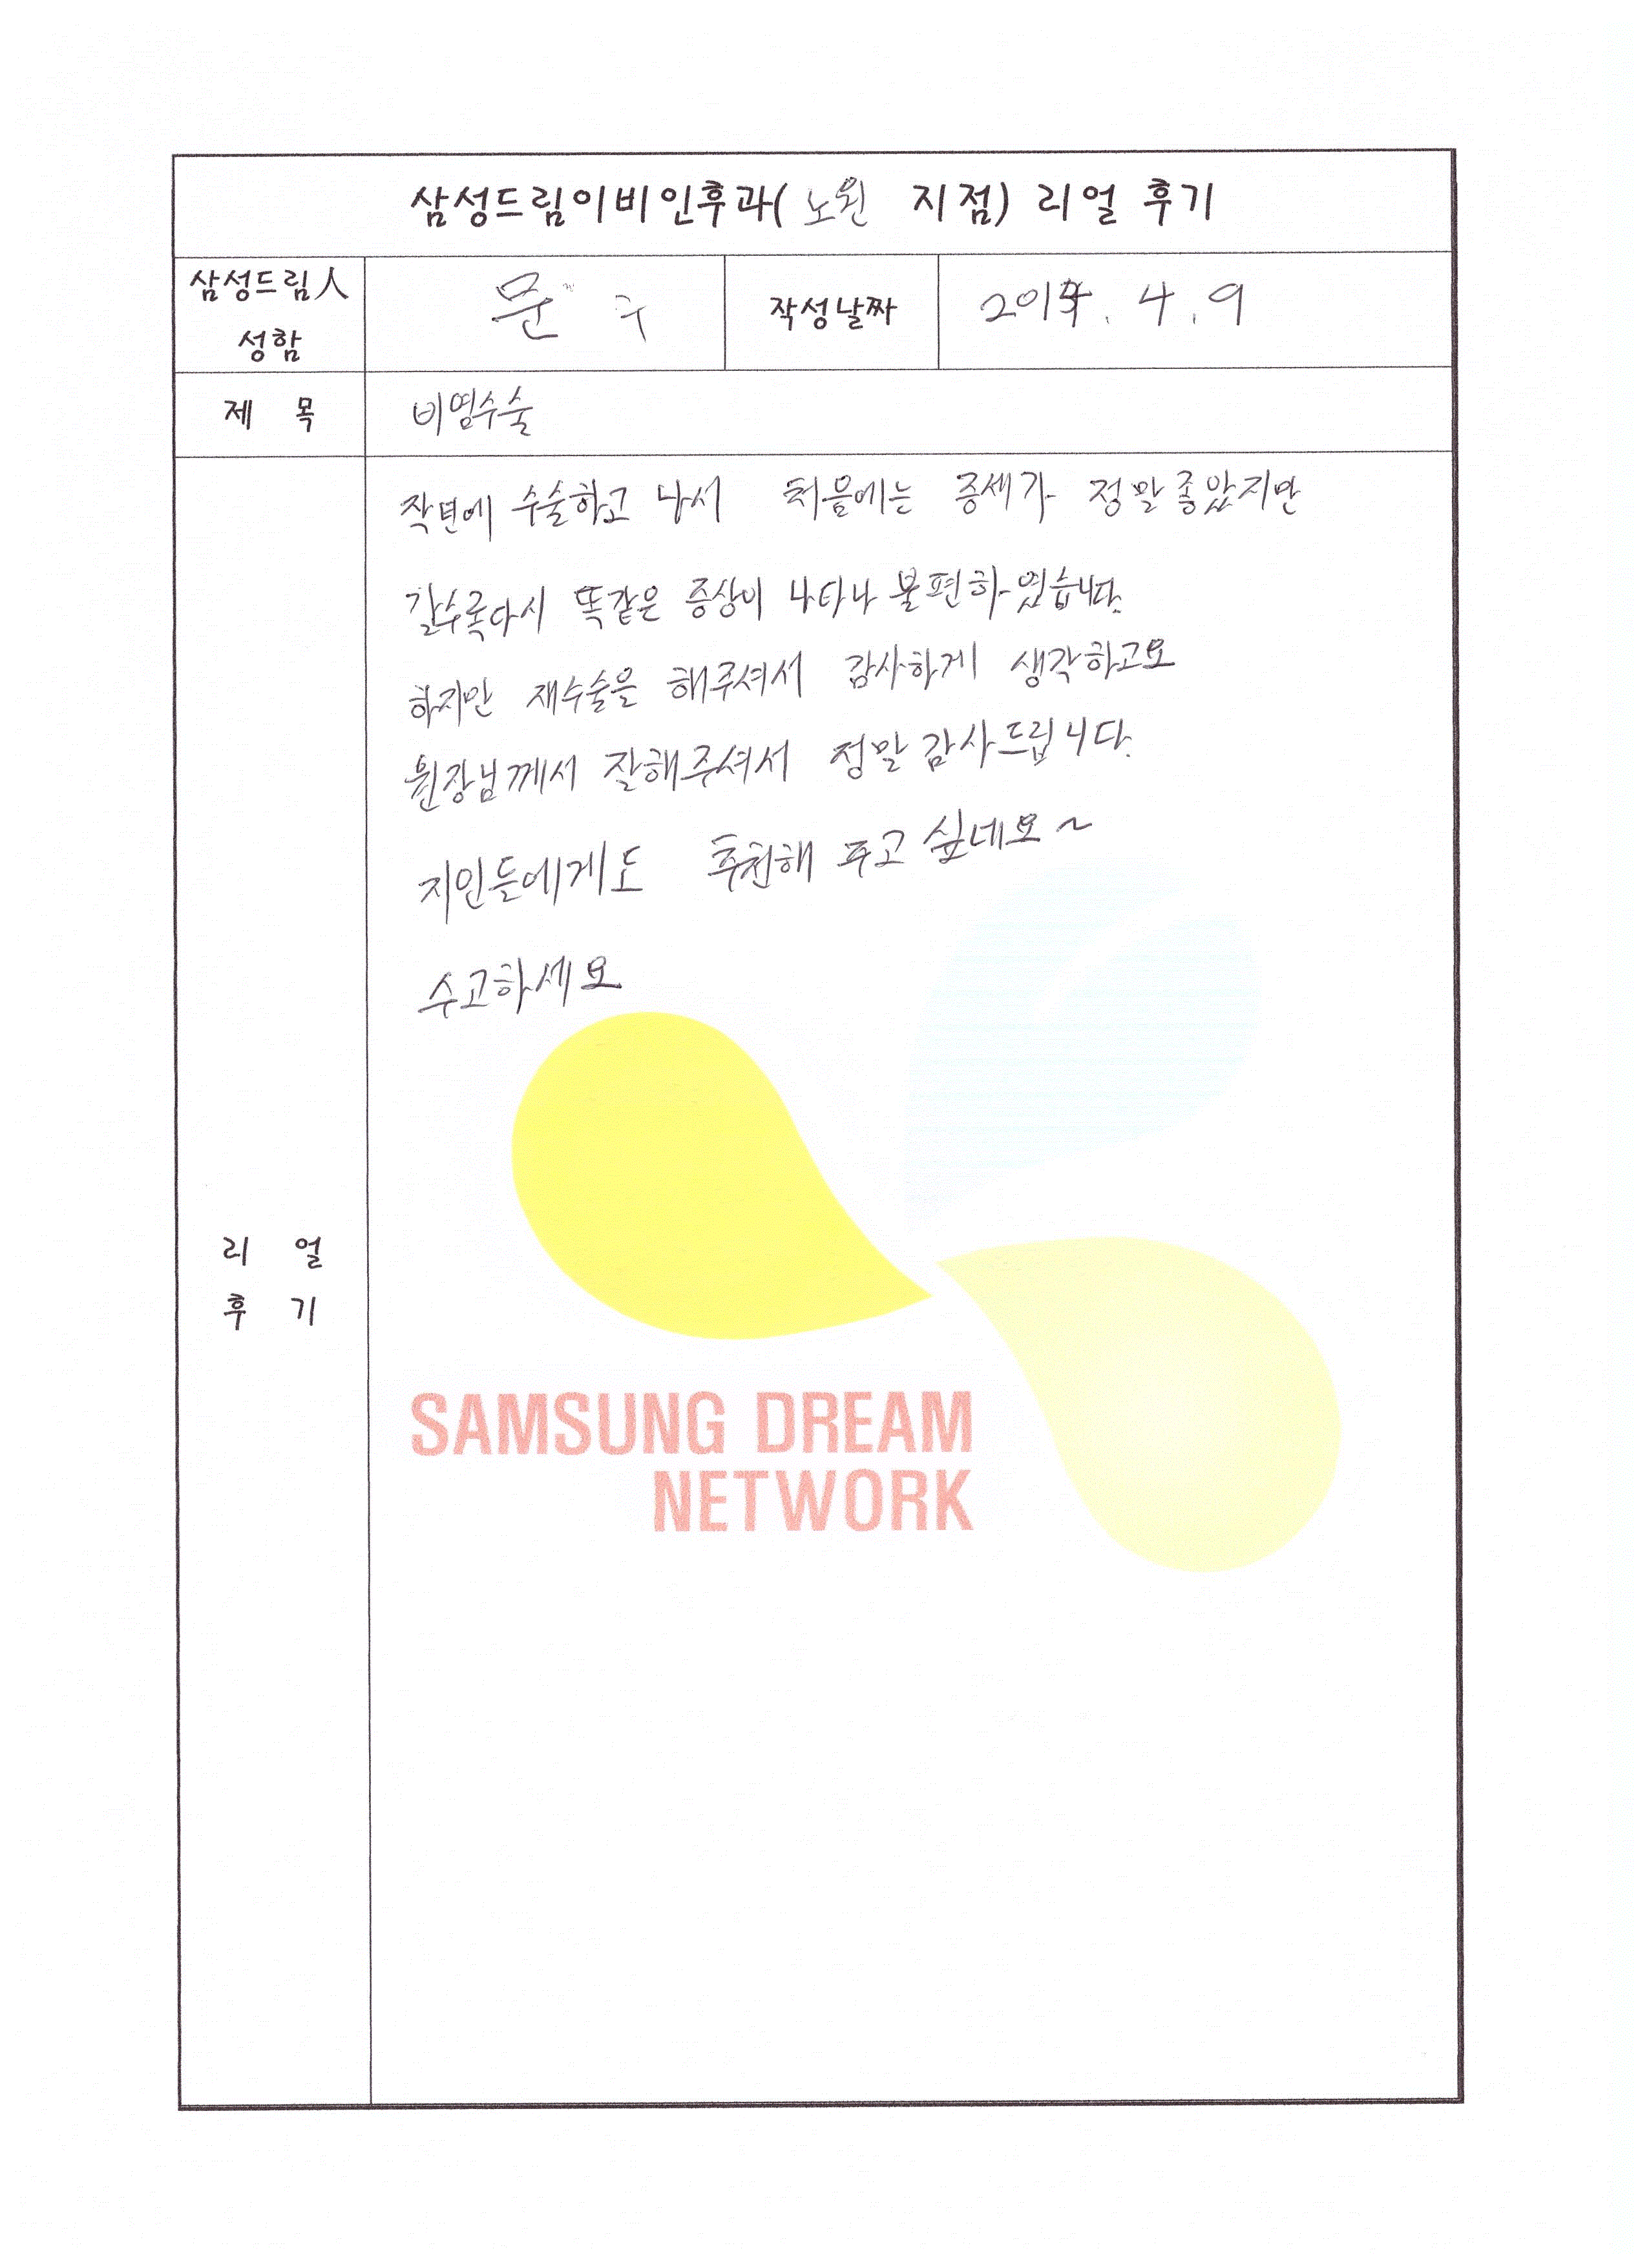 삼성드림이비인후과(노원 지점) 리얼 후기
삼성드림人
성함
문 구
작성날짜
2014. 4. 9
제 목
비염수술
작년에 수술하고 나서 처음에는 증세가 정말 좋았지만
갈수록 다시 똑같은 증상이 나타나 불편하였습니다.
하지만 재수술을 해주셔서 감사하게 생각하고요
원장님께서 잘해주셔서 정말 감사드립니다.
지인들에게도 추천해 주고 싶네요~
수고하세요
리 얼
후 기
SAMSUNG DREAM
NETWORK